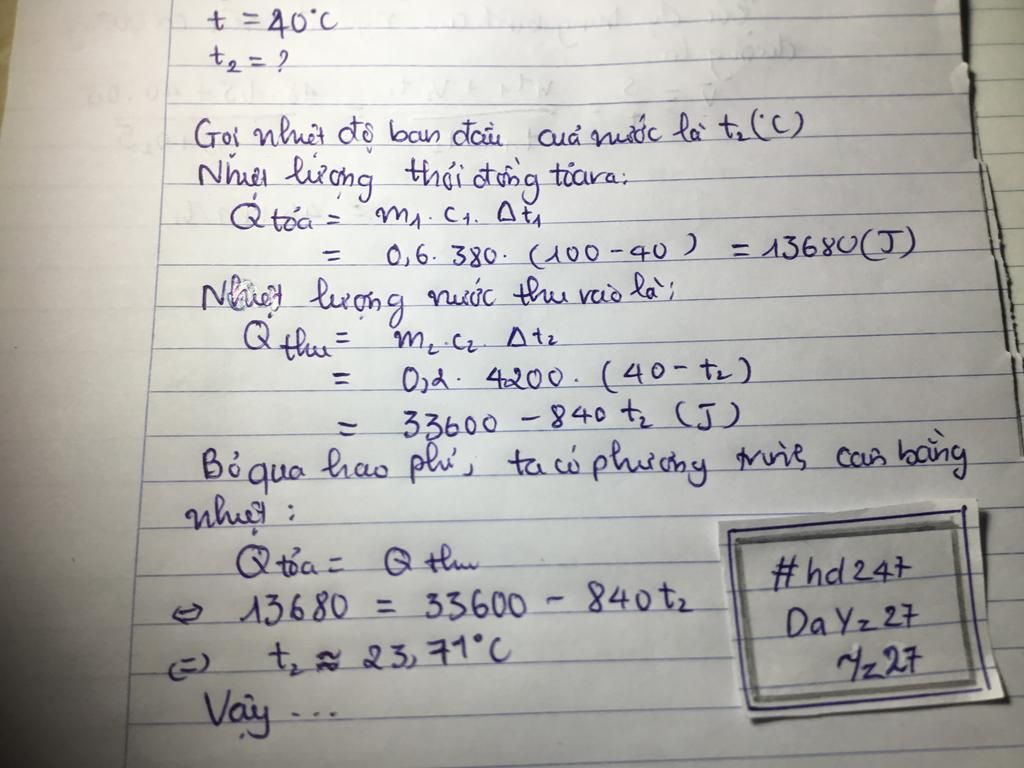 t = 40°C
t₂ = ?
Gọi nhiệt độ ban đầu của nước là t₂(°C)
Nhiệt lượng thỏi đồng tỏa ra:
Q tỏa = m₁. c₁. Δt₁
= 0,6. 380. (100 - 40) = 13680 (J)
Nhiệt lượng nước thu vào là:
Q thu = m₂.c₂. Δt₂
= 0,2. 4200. (40 - t₂)
= 33600 - 840 t₂ (J)
Bỏ qua hao phí, ta có phương trình cân bằng
nhiệt :
Q tỏa = Q thu
⇔ 13680 = 33600 - 840t₂
⇔ t₂ ≈ 23,71°C
Vậy ...
#hd247
DaYz27
Yz27